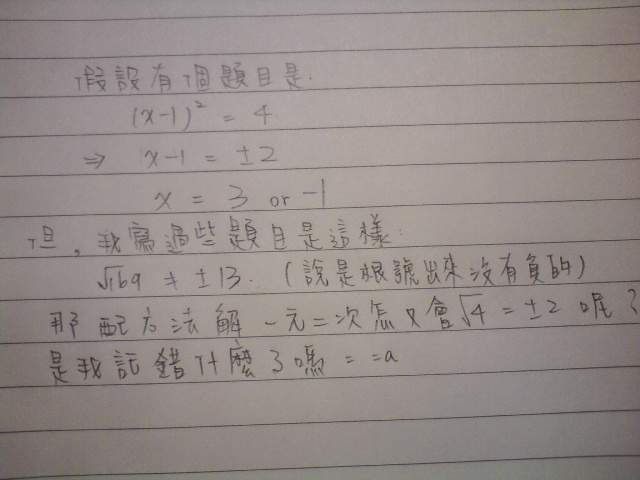 假設有個題目是:
(x-1)² = 4
⇒ x-1 = ±2
x = 3 or -1
但, 我寫過些題目是這樣:
√169 ≠ ±13. (說是根號出來沒有負的)
那配方法解一元二次怎又會√4 = ±2 呢?
是我記錯什麼了嗎 = =a